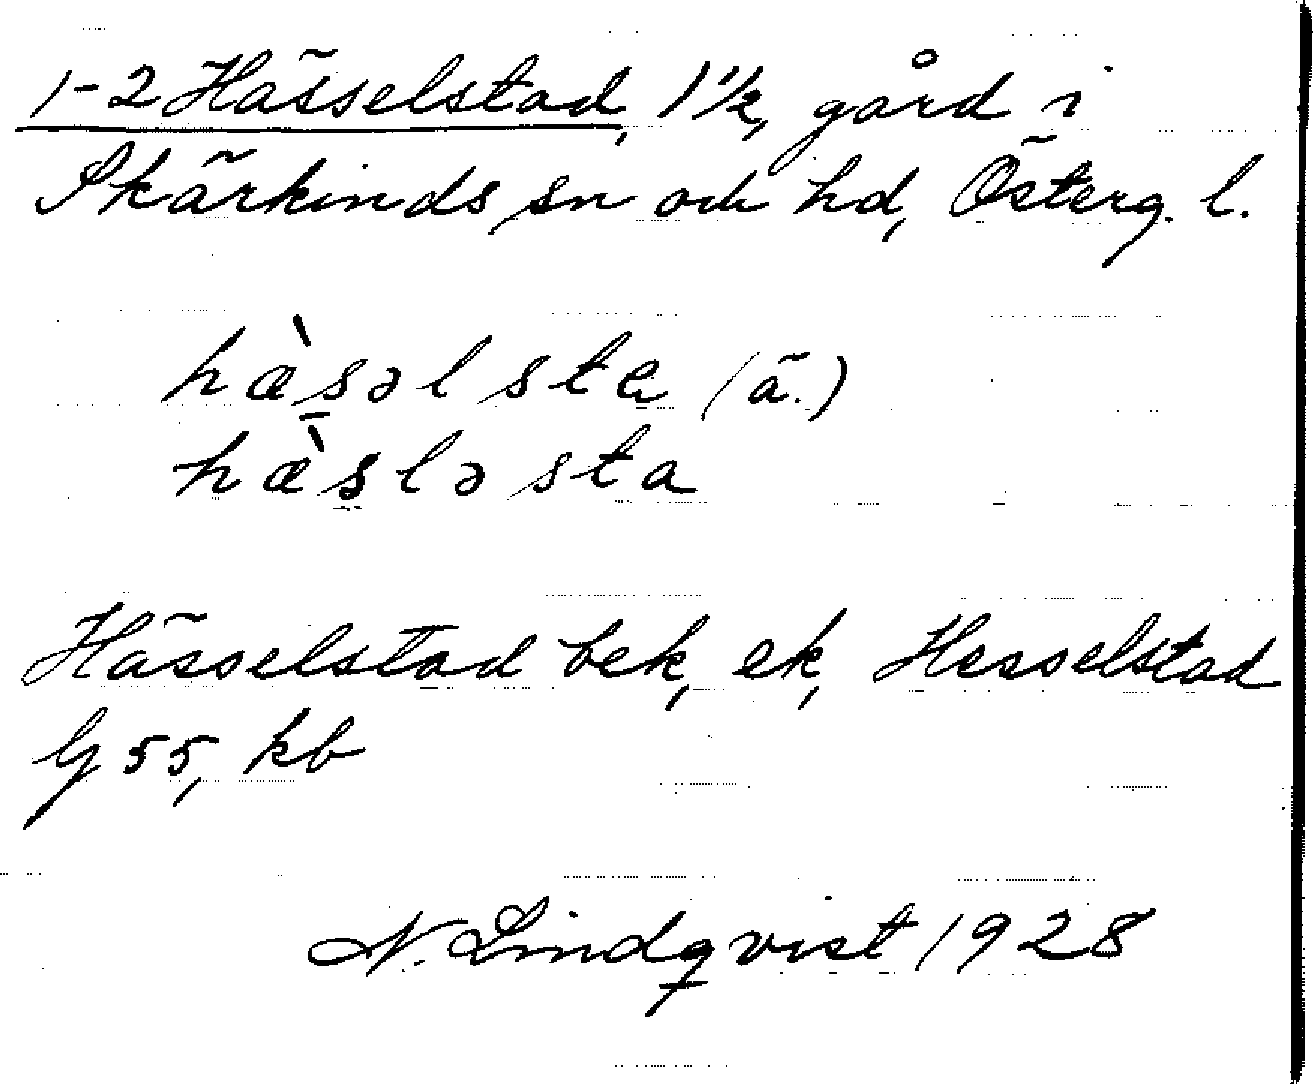 1-2 Hässelstad, 1 1/2, gård i
Skärkinds sn och hd, Österg. l.
hæ̀səlsta (ä.)
hæ̀sləsta
Hässelstad bek, ek, Hesselstad
G 55, kb
N. Lindqvist 1928